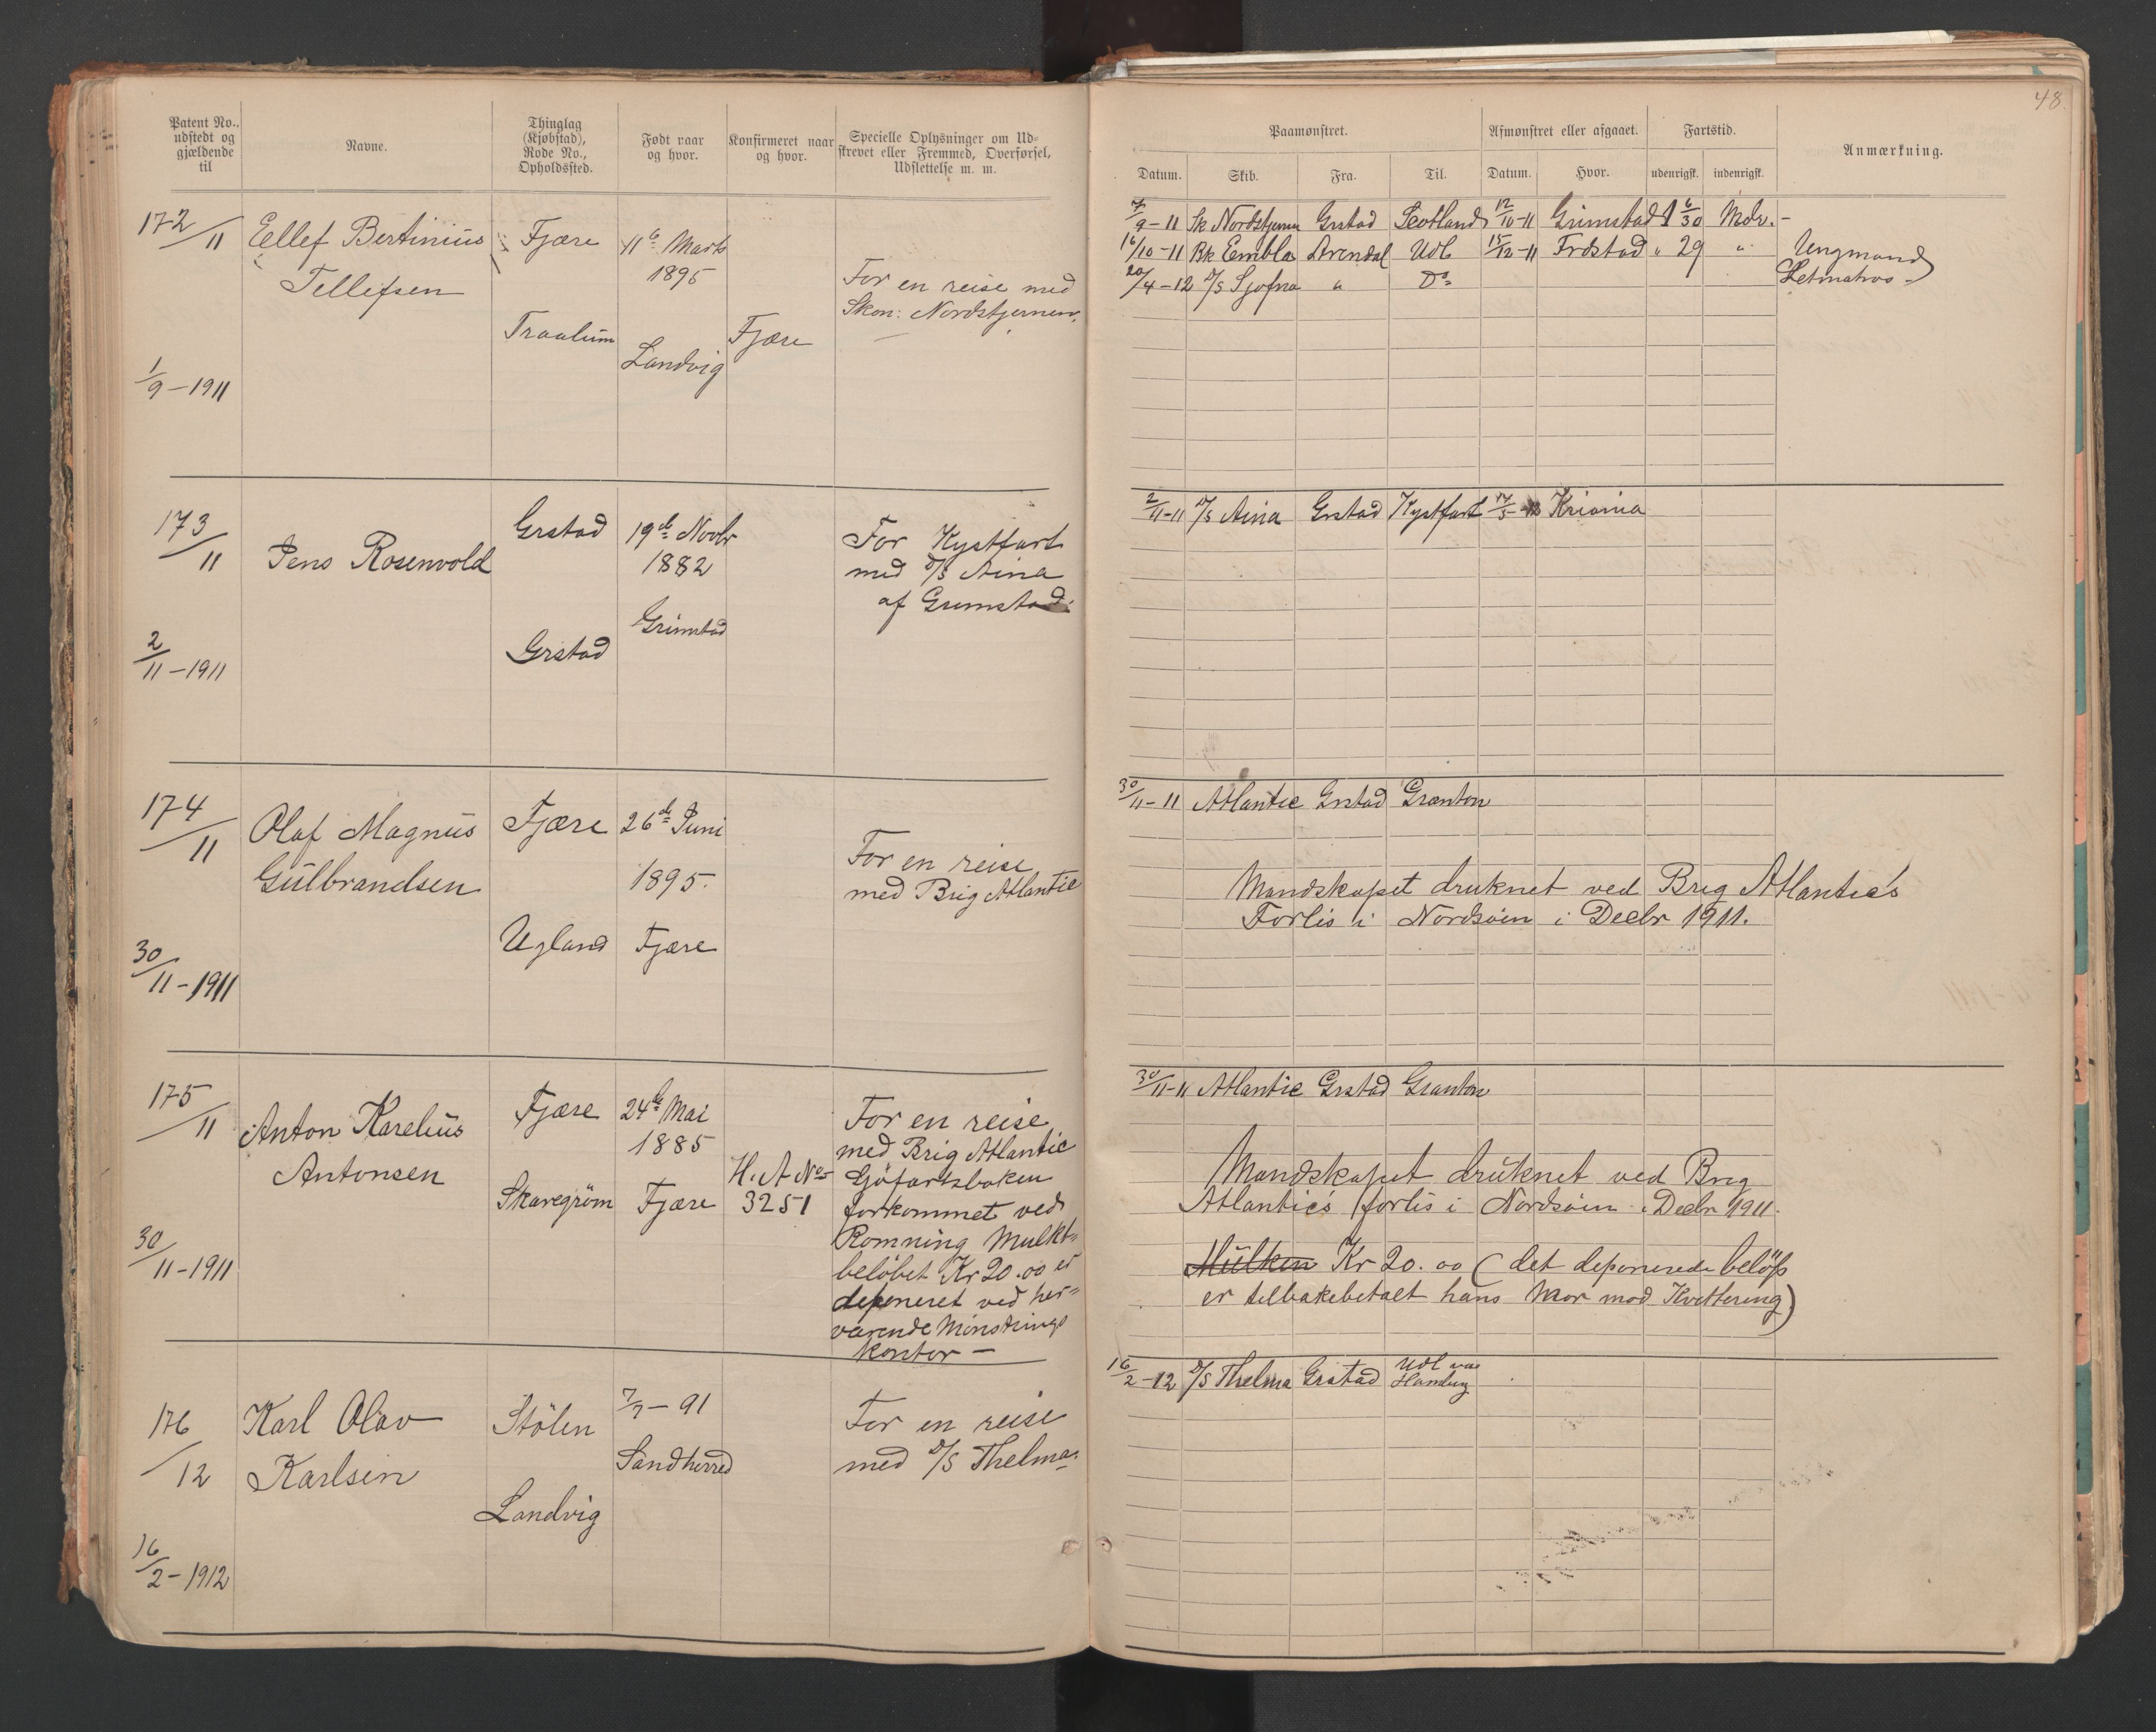 48.
Patent No.,
udstedt og
gjældende
til
Navne.
Thinglag
(Kjøbstad),
Rode No.,
Opholdssted.
Født naar
og hvor.
Konfirmeret naar
og hvor.
Specielle Oplysninger om Ud=
skrevet eller Fremmed, Overførsel,
Udslettelse m. m.
Paamønstret.
Afmønstret eller afgaaet.
Fartstid.
Anmærkning.
Datum. Skib. Fra. Til. Datum. Hvor. udenrigsk. indenrigsk.
172/11
Eellef Bertinius
Tellefsen
Fjære
Traalum
11te Marts
1895
Landvig
Fjære
For en reise med
Skon: Nordstjernen.
1/9-1911
7/9-11 Sk Nordstjernen Grstad Scotland 12/10-11 Grimstad 1 6/30 Mdr. -
16/10-11 Bk Eembla Arendal Udl 15/12-11 Frdstad " 29 " Ungmand
20/4-12 D/S Sjofna " Do Letmatros -
173/11
Jens Rosenvold
Grstad
Grstad
19de Novbr
1882
Grimstad
For Kystfart
med D/S Aina
af Grimstad.
2/11-1911
2/11-11 D/S Aina Grstad Kystfart 17/5-12 Kriania
174/11
Olaf Magnus
Gulbrandsen
Fjære
Ugland
26de Juni
1895.
Fjære
For en reise
med Brig Atlantic
30/11-1911
30/11-11 Atlantic Grstad Granton
Mandskapet druknet ved Brig Atlantic's
Forlis i Nordsøen i Decbr 1911.
175/11
Anton Karelius
Antonsen
Fjære
Skaregrøm
24de Mai
1885
Fjære
H. A No
3251
For en reise
med Brig Atlantic
Sjöfartsboken
forkommet ved
Romning Mulkt=
beløbet Kr 20.00 er
deponeret ved her=
værende Mønstrings
kontor -
30/11-1911
30/11-11 Atlantic Grstad Granton
Mandskapet druknet ved Brig
Atlantic's forlis i Nordsøen i Decbr 1911.
Mulkten Kr 20.00 (det deponerede beløb
er tilbakebetalt hans Mor mod Kvittering)
176/12
Karl Olav
Karlsen
Stølen
Landvig
7/7-91
Sandherred
For en reise
med D/S Thelma.
16/2-1912
16/2-12 D/S Thelma Grstad Udl via
Hamburg